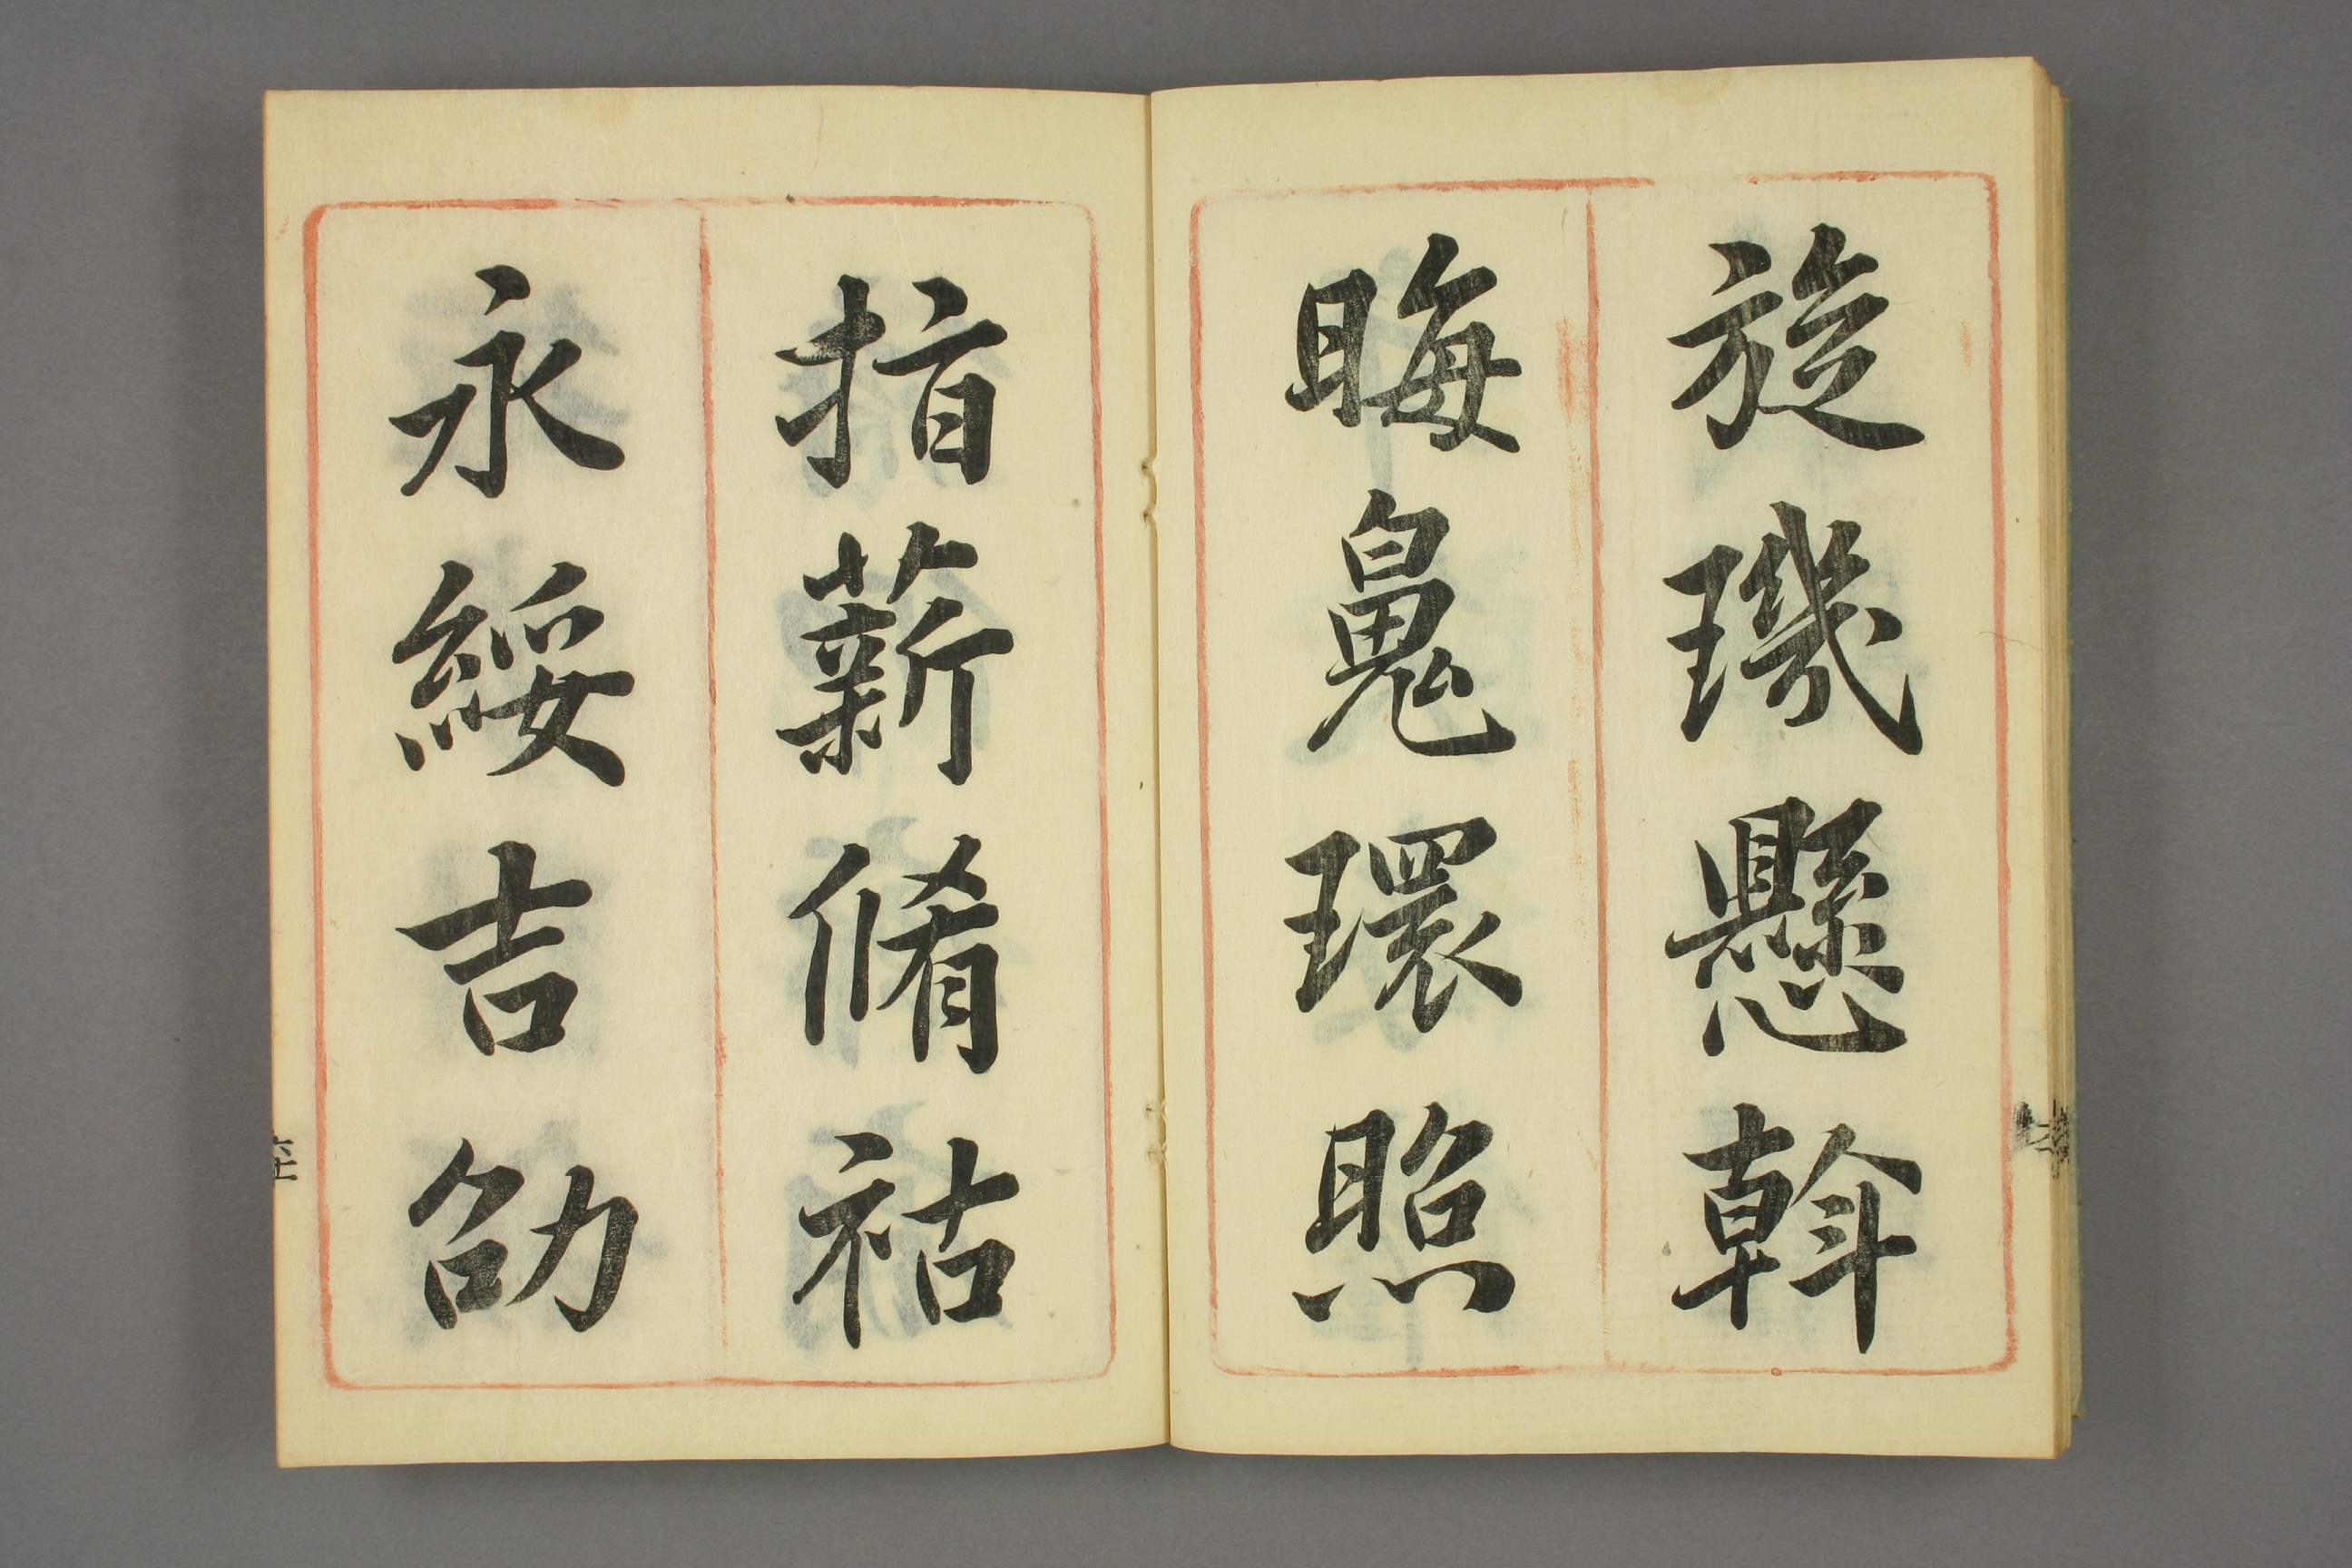 旋璣懸斡
晦魄環照
指薪脩祜
永綏吉劭
六十一